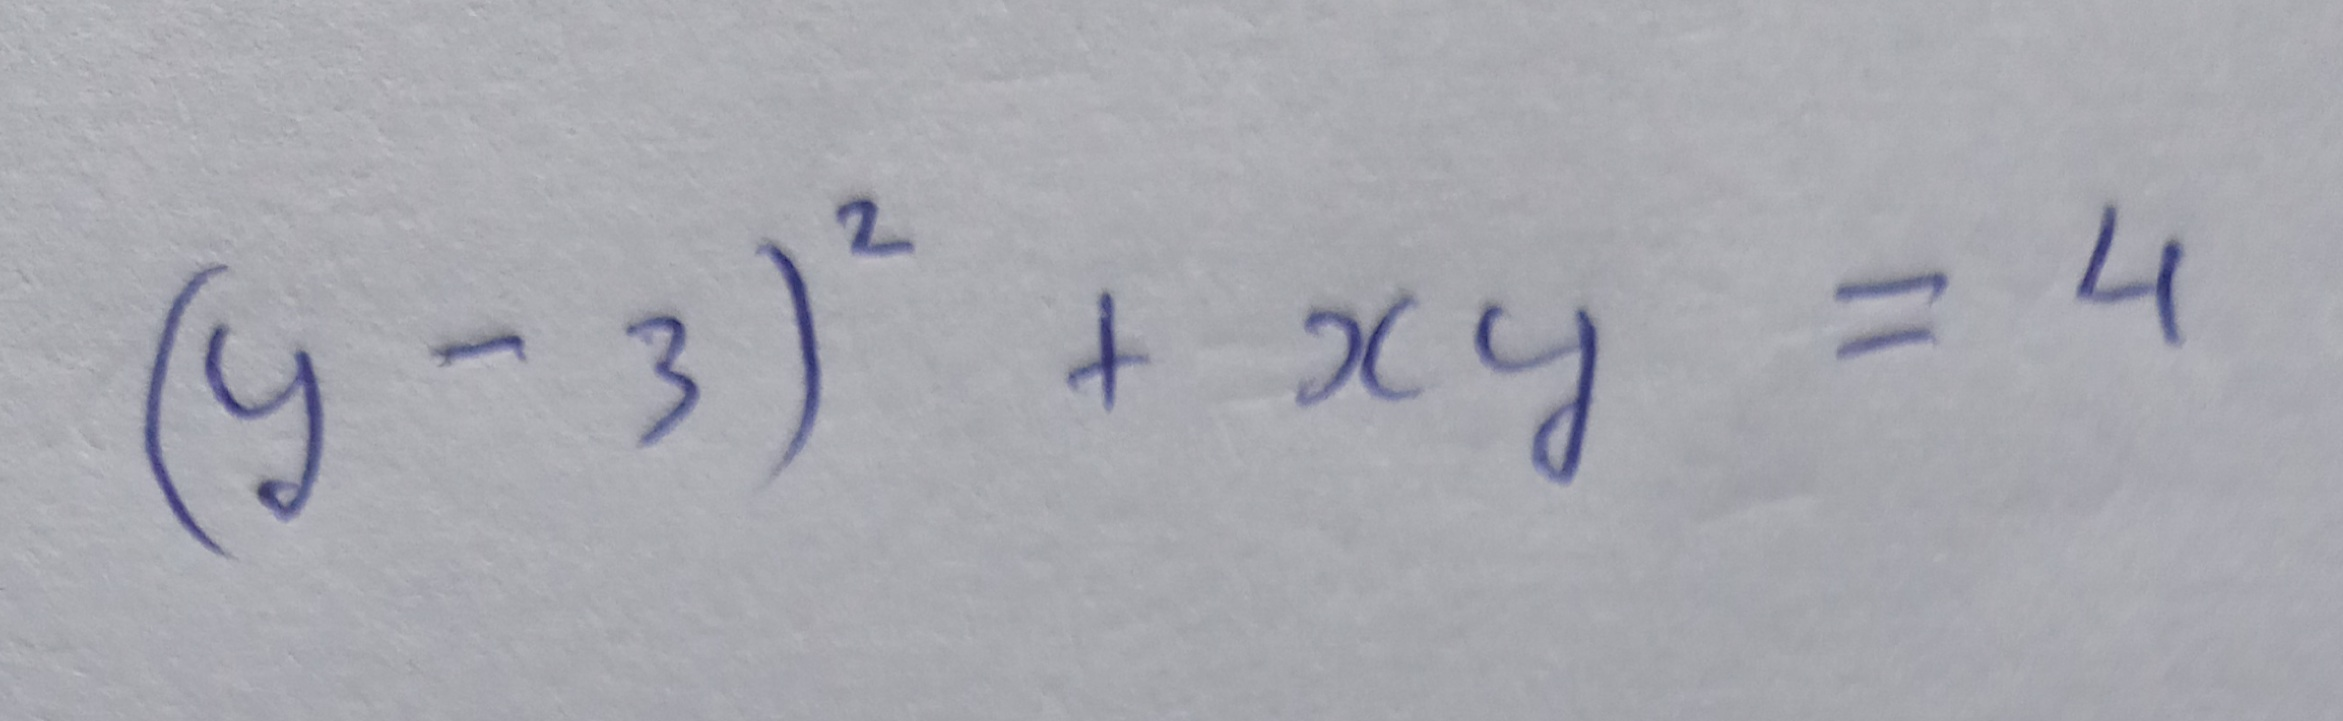 (y - 3)² + xy = 4